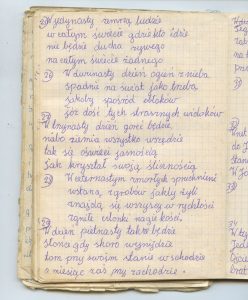 (25) W jedynasty zamrą ludzie
w całym świecie gdzie kto idzie
nie będzie ducha żywego
na całym świecie żadnego
(26) W dwunasty dzień ogień z nieba
spadnie na świat jako trzeba
jakoby spośród obłoków
już dość tych strasznych widoków
(27) W trynasty dzień, gore będzie
nabo ziemia wszystko wszędzie
tak się oświeci jasnością
jak kryształ swoją ślicznością
(28) W czternastym zmarłych spróchnieni
wstaną, z grobów jakby żyli
znajdą się wszyscy w rychłości
zgniłe członki nagi kości
(29) W dzień pietnasty także będzie
słońce gdy skoro wzynijdzie
ton przy swoim stanie w schodzie
a miesiąc zaś przy zachodzie